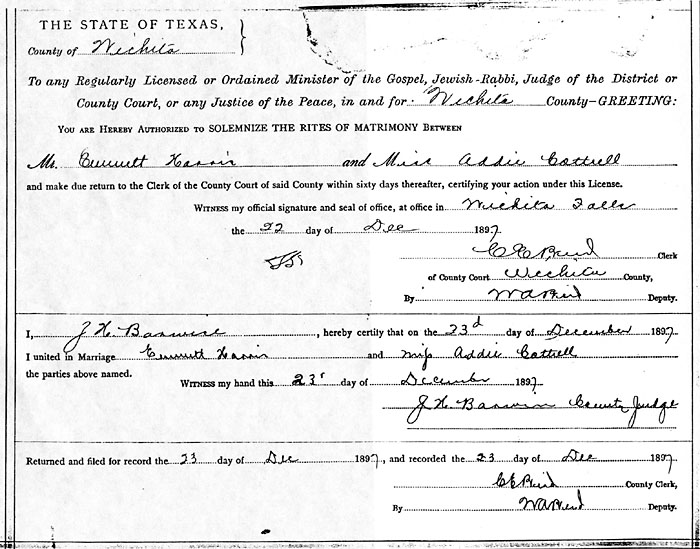 THE STATE OF TEXAS,
County of Wichita
To any Regularly Licensed or Ordained Minister of the Gospel, Jewish-Rabbi, Judge of the District or
County Court, or any Justice of the Peace, in and for Wichita County—GREETING:
YOU ARE HEREBY AUTHORIZED TO SOLEMNIZE THE RITES OF MATRIMONY BETWEEN
Mr. Emmett Harris and Miss Addie Cottrell
and make due return to the Clerk of the County Court of said County within sixty days thereafter, certifying your action under this License.
WITNESS my official signature and seal of office, at office in Wichita Falls
the 22 day of Dec 1897
Clerk
of County Court Wichita County,
By Deputy.
I, J H Barwise, hereby certify that on the 23d day of December 1897
I united in Marriage Emmett Harris and Miss Addie Cottrell
the parties above named.
WITNESS my hand this 23r day of December 1897
J H Barwise County Judge
Returned and filed for record the 23 day of Dec 1897, and recorded the 23 day of Dec 1897
County Clerk,
By Deputy.